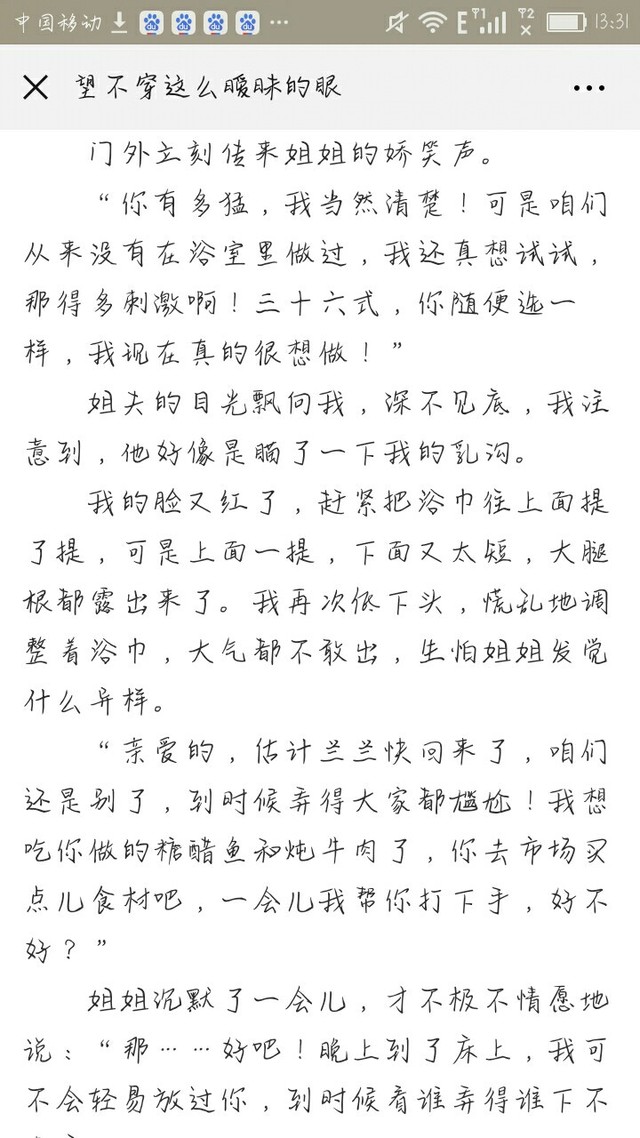 中国移动 13:31
望不穿这么暧昧的眼
门外立刻传来姐姐的娇笑声。
“你有多猛，我当然清楚！可是咱们
从来没有在浴室里做过，我还真想试试，
那得多刺激啊！三十六式，你随便选一
样，我现在真的很想做！”
姐夫的目光飘向我，深不见底，我注
意到，他好像是瞄了一下我的乳沟。
我的脸又红了，赶紧把浴巾往上面提
了提，可是上面一提，下面又太短，大腿
根都露出来了。我再次低下头，慌乱地调
整着浴巾，大气都不敢出，生怕姐姐发觉
什么异样。
“亲爱的，估计兰兰快回来了，咱们
还是别了，到时候弄得大家都尴尬！我想
吃你做的糖醋鱼和炖牛肉了，你去市场买
点儿食材吧，一会儿我帮你打下手，好不
好？”
姐姐沉默了一会儿，才不极不情愿地
说：“那……好吧！晚上到了床上，我可
不会轻易放过你，到时候看谁弄得谁下不